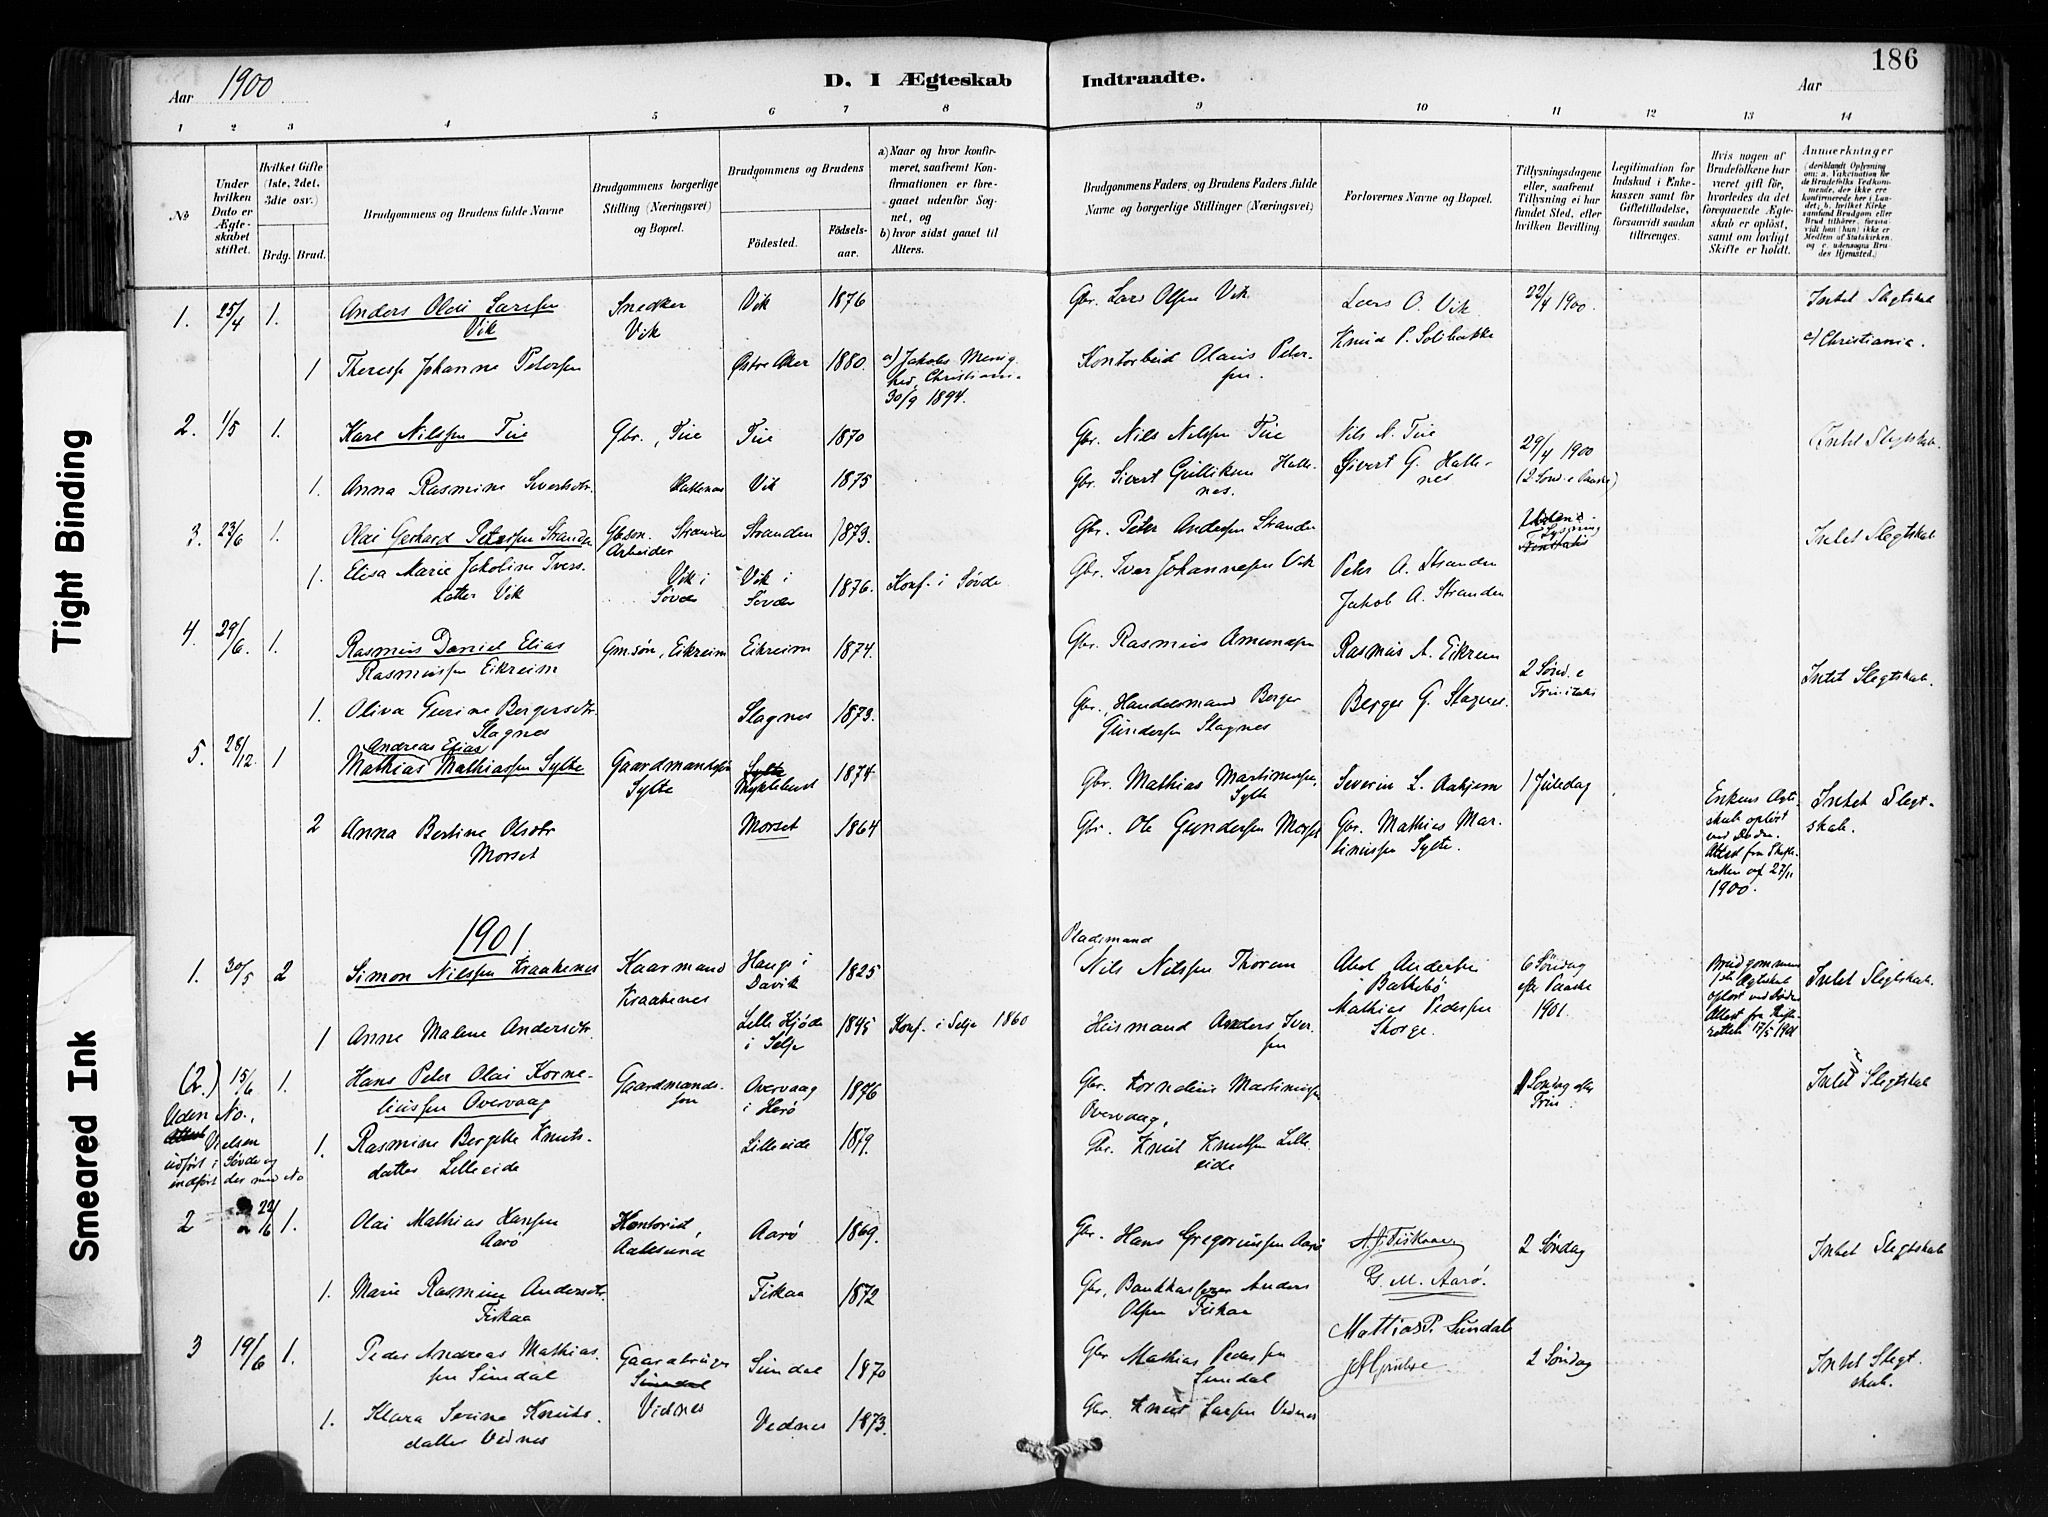 186
Aar 1900
D. I Ægteskab
Indtraadte.
Aar
1 2 3 4 5 6 7 8 9 10 11 12 13 14
No
Under hvilken Dato er Ægteskabet stiftet.
Hvilket Gifte (1ste, 2det, 3die osv.)
Brdg. Brud.
Brudgommens og Brudens fulde Navne
Brudgommens borgerlige Stilling (Næringsvei) og Bopæl.
Brudgommens og Brudens
Fødested.
Fødselsaar.
a) Naar og hvor konfirmeret, saafremt Konfirmationen er foregaaet udenfor Sognet, og
b) hvor sidst gaaet til Alters.
Brudgommens Faders, og Brudens Faders fulde Navne og borgerlige Stillinger (Næringsvei)
Forlovernes Navne og Bopæl.
Tillysningsdagene eller, saafremt Tillysning ei har fundet Sted, efter hvilken Bevilling.
Legitimation for Indskud i Enkekassen samt for Giftetilladelse, forsaavidt saadan tiltrænges.
Hvis nogen af Brudefolkene har været gift før, hvorledes da det foregaaende Ægteskab er opløst, samt om lovligt Skifte er holdt.
Anmærkninger
1. 25/4 1. Anders Olai Larssen Vik
Snedker Vik
Vik 1876
Gbr. Lars Olsen Vik
Lars O. Vik
Knud P. Solibakke
22/4 1900.
Intet Slegtskab
a) Christiania.
1 Therese Johanne Petersen
Østre Aker 1880.
a) Jakobs Menighed, Christiani. 30/9 1894.
Kontorbud Olaus Petersen.
2. 1/5 1. Karl Nilssen Tue
Gbr., Tue
Tue 1870
Gbr. Nils Nilssen Tue
Nils N. Tue
29/4 1900
(2 Sønd. e Paaske)
Intet Slegtskab.
1. Anna Rasmine Sivertsdtr.
Hallenes Vik 1875
Gbr. Sivert Gulliksen Hallenes.
Sivert G. Hallenes
3. 23/6 1. Olai Gerhard Peterssen Stranden
Gbrsøn. Stranden
Arbeider
Stranden 1873.
Gbr. Peter Anderssen Stranden
Intet Slegtskab
1. Elisa Marie Jakoline Iversdatter Vik
Vik i Søvde
Vik i Søvde 1876.
Konf. i Søvde
Gbr. Iver Johannessen Vik
Peter A. Stranden
Jakob A. Stranden
4. 29/6. 1. Rasmus Daniel Elias Rasmussen Eikreim
Gm.søn, Eikreim
Eikreim 1874.
Gbr. Rasmus Amundsen
Rasmus A. Eikrem
2 Sønd. e Trinitatis
Intet Slegtskab.
1. Oliva Gurine Bergersdtr. Slagnes
Slagnes 1873.
Gbr., Handelsmand Berger Gundersen Slagnes
Berger G. Slagnes.
5. 28/12. 1 Andreas Elias
Mathias Mathiassen Sylte
Gaardmandssøn Sylte
Sylte
Myklebust 1874
Gbr. Mathias Martinussen Sylte
Severin L. Aahjem
1 Juledag
Enkens Ægteskab opløst ved Døden. Attest fra Skifteretten af 27/11 1900.
Intet Slegtskab.
2 Anna Bertine Olsdtr Morset
Morset 1864
Gbr. Ole Gundersen Morset
Gbr. Mathias Martinussen Sylte.
1901
1. 30/5 2 Simon Nilssen Kraakenes
Kaarmand Kraakenes
Hauge i Davik 1825
Pladsmand
Nils Nilssen Thorem
Abel Andersen Bakkebø
Mathias Pederssen Skorge.
6 Søndag efter Paaske 1901.
Brudgommens 1ste Ægteskab opløst ved Døden Attest fra Skifteretten 17/5 1901
Intet Slegtskab.
1 Anne Malene Andersdtr.
Lille Hjøde i Selje 1845
Konf. i Selje 1860
Husmand Anders Iversen
(2.) 15/6 1. Hans Peter Olai Korneliussen Overvaag
Gaardmandssøn
Overvaag i Herø 1876
Gbr. Kornelius Martinussen Overvaag,
1 Søndag efter Trin.
Intet Slegtskab
Uden No.,
Vielsen udført i Søvde og indført der med No
1. Rasmine Bergitte Knutsdatter Lilleeide
Lilleeide 1879.
Gbr. Knut Knutsen Lilleeide
2 22/6 1. Olai Mathias Hanssen Aarø
Kontorist, Aalesund
Aarø 1869.
Gbr. Hans Gregoriussen Aarø
A. Fiskaa
G. M. Aarø.
2 Søndag
Intet Slegtskab
1. Marie Rasmine Andersdtr. Fiskaa
Fiskaa 1872
Gbr., Bankkasserer Anders Olsen Fiskaa
3 19/6 1. Peder Andreas Mathiassen Sundal
Gaardbruger
Sundal
Vidnes
Sundal 1870
Gbr Mathias Pederssen Sundal
Mattias P. Sundal
2 Søndag
Intet Slegtskab.
1. Klara Serine Knutsdatter Vednes
Vednes 1873.
Gbr. Knut Larssen Vednes
Tight Binding
Smeared Ink